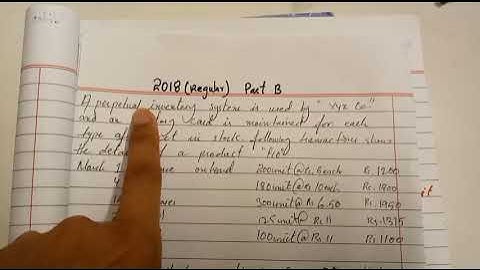 2018 (Regular) Part B
A perpetual inventory system is used by "Xyz Co"
and an card is maintained for each
type of in stock following transactions shows
the deta of a product
March 1 onhand 200unit@Rs.6each Rs.1200
180unit@Rs.10each Rs.1800
300unit@Rs6.50 Rs.1950
125unit@Rs11 Rs.1375
100unit@Rs11 Rs.1100
it